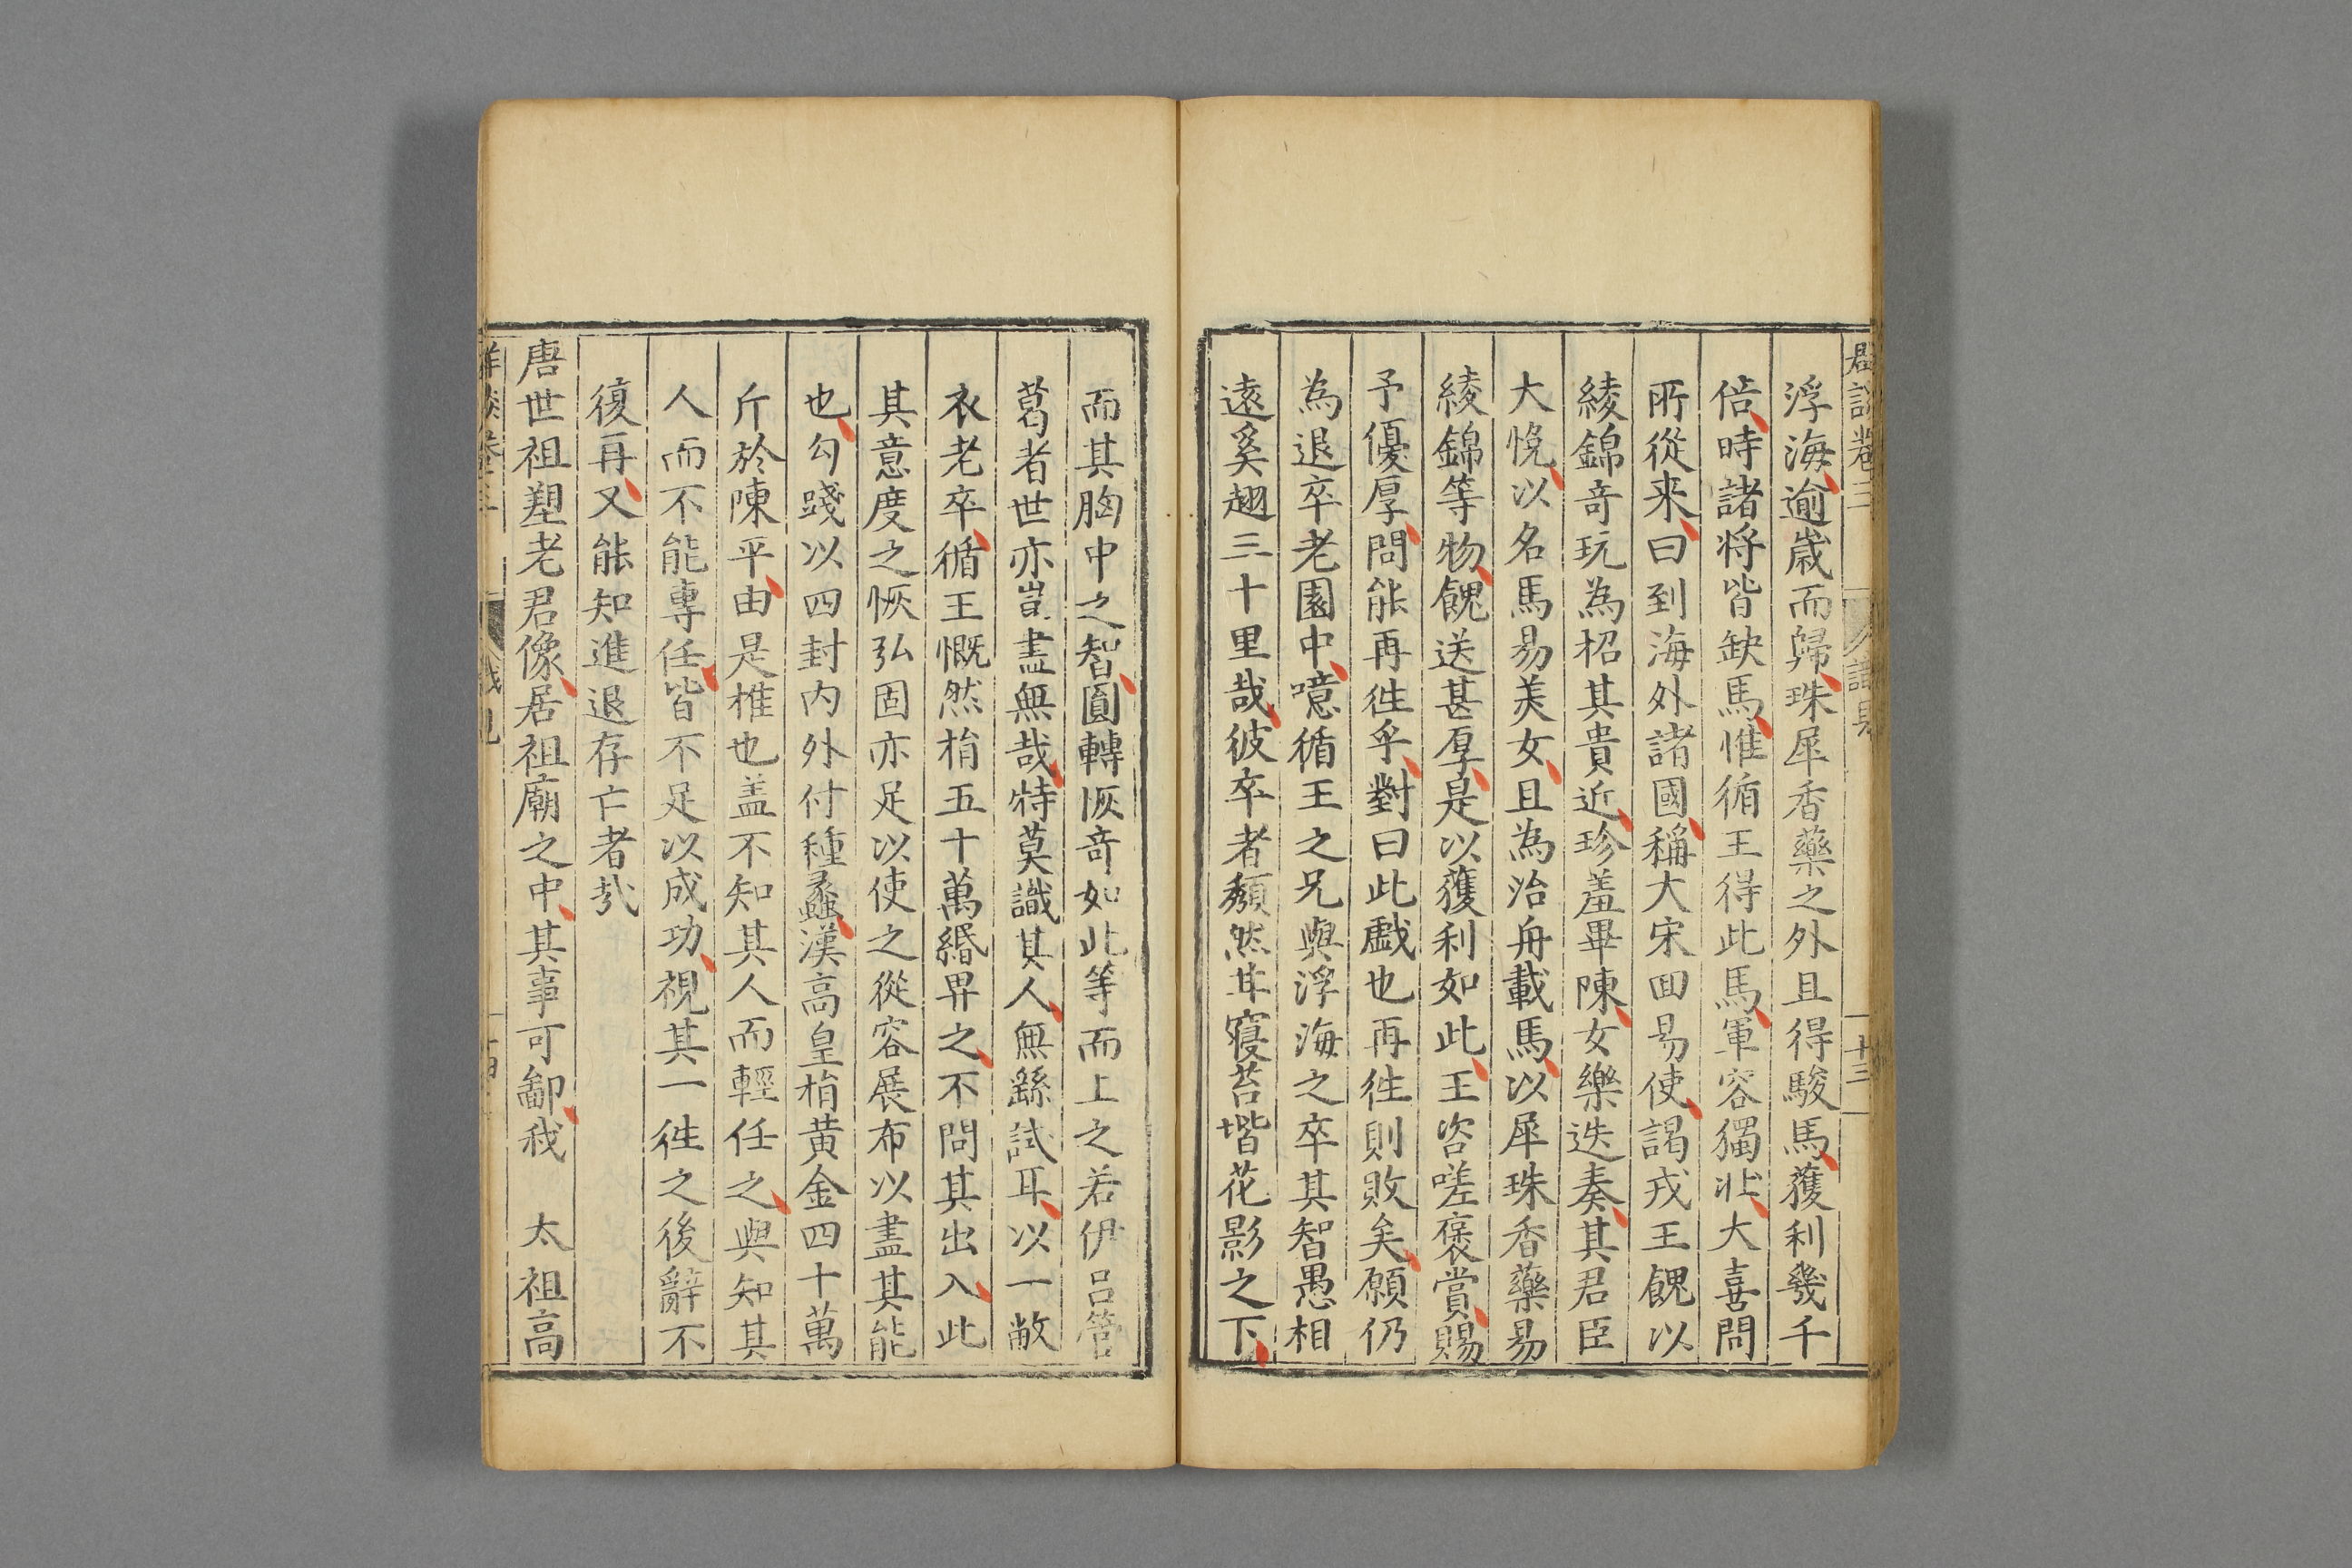 浮海逾歲而歸珠犀香藥之外且得駿馬獲利幾千
倍時諸将皆缺馬惟循王得此馬軍容獨壯大喜問
所從来曰到海外諸國稱大宋回易使謁戎王餽以
綾錦竒玩為招其貴近珍羞畢陳女樂迭奏其君臣
大悅以名馬易美女且為治舟載馬以犀珠香藥易
綾錦等物餽送甚厚是以獲利如此王咨嗟褒賞賜
予優厚問能再徃乎對曰此戱也再徃則敗矣願仍
為退卒老園中噫循王之兄與浮海之卒其智愚相
遠奚翅三十里哉彼卒者頹然甘寢苔堦花影之下
而其胸中之智圓轉恢竒如此等而上之若伊吕管
葛者世亦豈盡無哉特莫識其人無繇試耳以一敝
衣老卒循王慨然捎五十萬緡畀之不問其出入此
其意度之恢弘固亦足以使之從容展布以盡其能
也勾踐以四封内外付種蠡漢高皇捎黄金四十萬
斤於陳平由是推也盖不知其人而輕任之與知其
人而不能專任皆不足以成功視其一徃之後辭不
復再又能知進退存亡者㢤
唐世祖塑老君像居祖廟之中其事可鄙我 太祖高